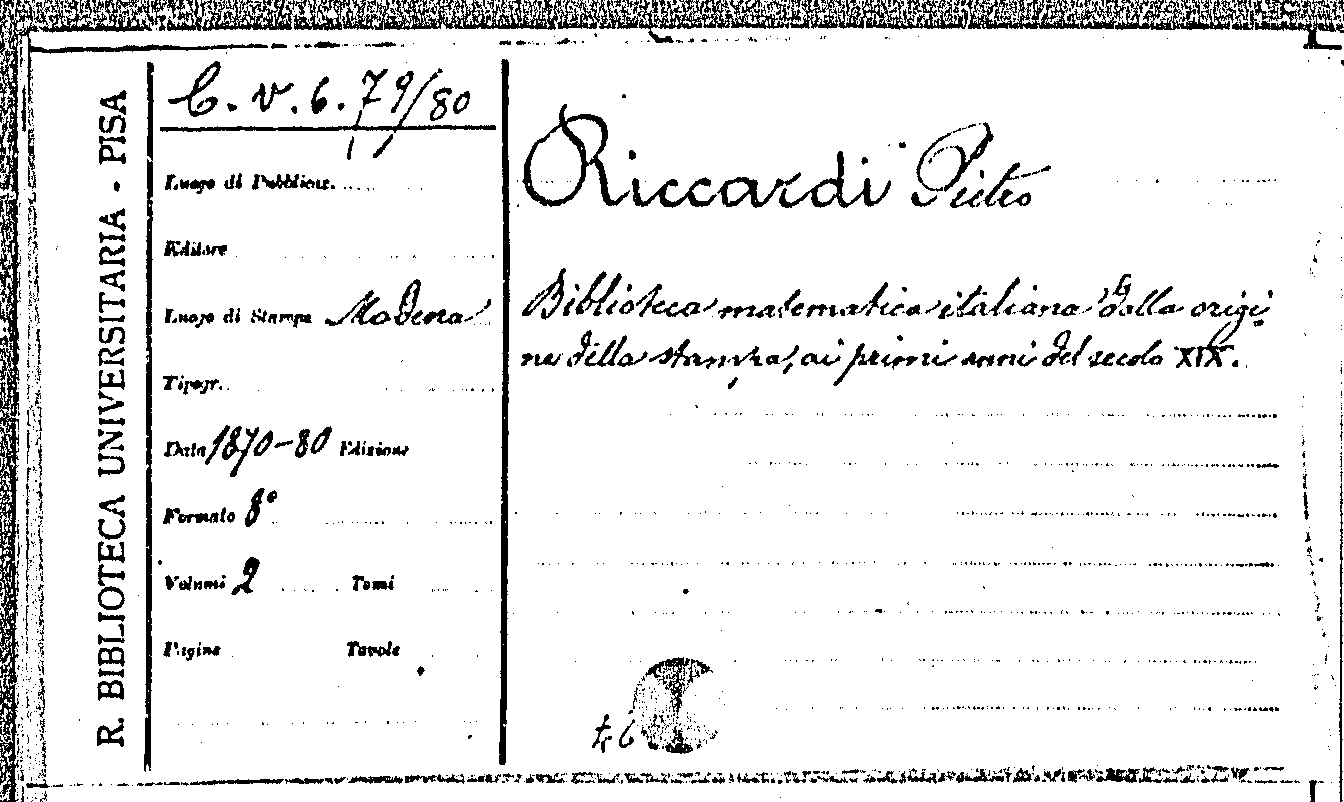 R. BIBLIOTECA UNIVERSITARIA - PISA
C. v. 6. 79/80
Luogo di Pubblicaz.
Editore
Luogo di Stampa Modena
Tipogr.
Data 1870-80 Edizione
Formato 8°
Volumi 2 Tomi
Pagine Tavole
Riccardi Pietro
Biblioteca matematica italiana dalla origi
ne della stampa, ai primi anni del secolo XIX.